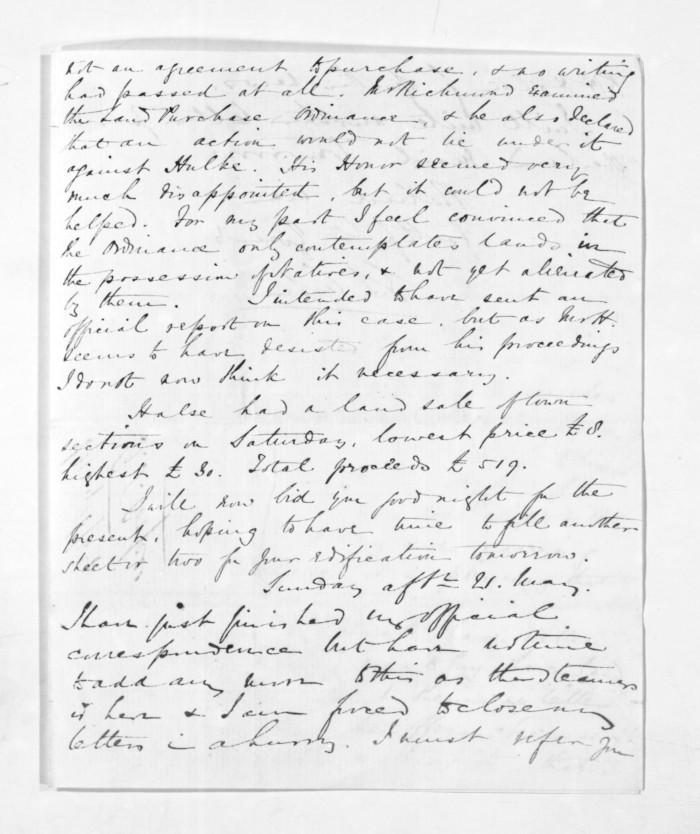 not an agreement to purchase, & no writing
had passed at all. Mr Richmond examined
the Land Purchase Ordinance, & he also declared
that an action would not lie under it
against Hulke. His Honor seemed very
much disappointed, but it could not be
helped. For my part I feel convinced that
the Ordinance only contemplates lands in
the possession of Natives, & not yet alienated
by them. I intended to have sent an
official report on this case, but as Mr H.
seems to have desisted from his proceedings
I do not now think it necessary.
Halse had a land sale of town
sections on Saturday, lowest price £8.
highest £30. Total proceeds £519.
I will now bid you good night for the
present, hoping to have time to fill another
sheet or two for your edification tomorrow.
Sunday aftn 21. May.
I have just finished my official
correspondence but have not time
to add any more to this as the steamer
is here & I am forced to close my
letters in a hurry. I must refer you